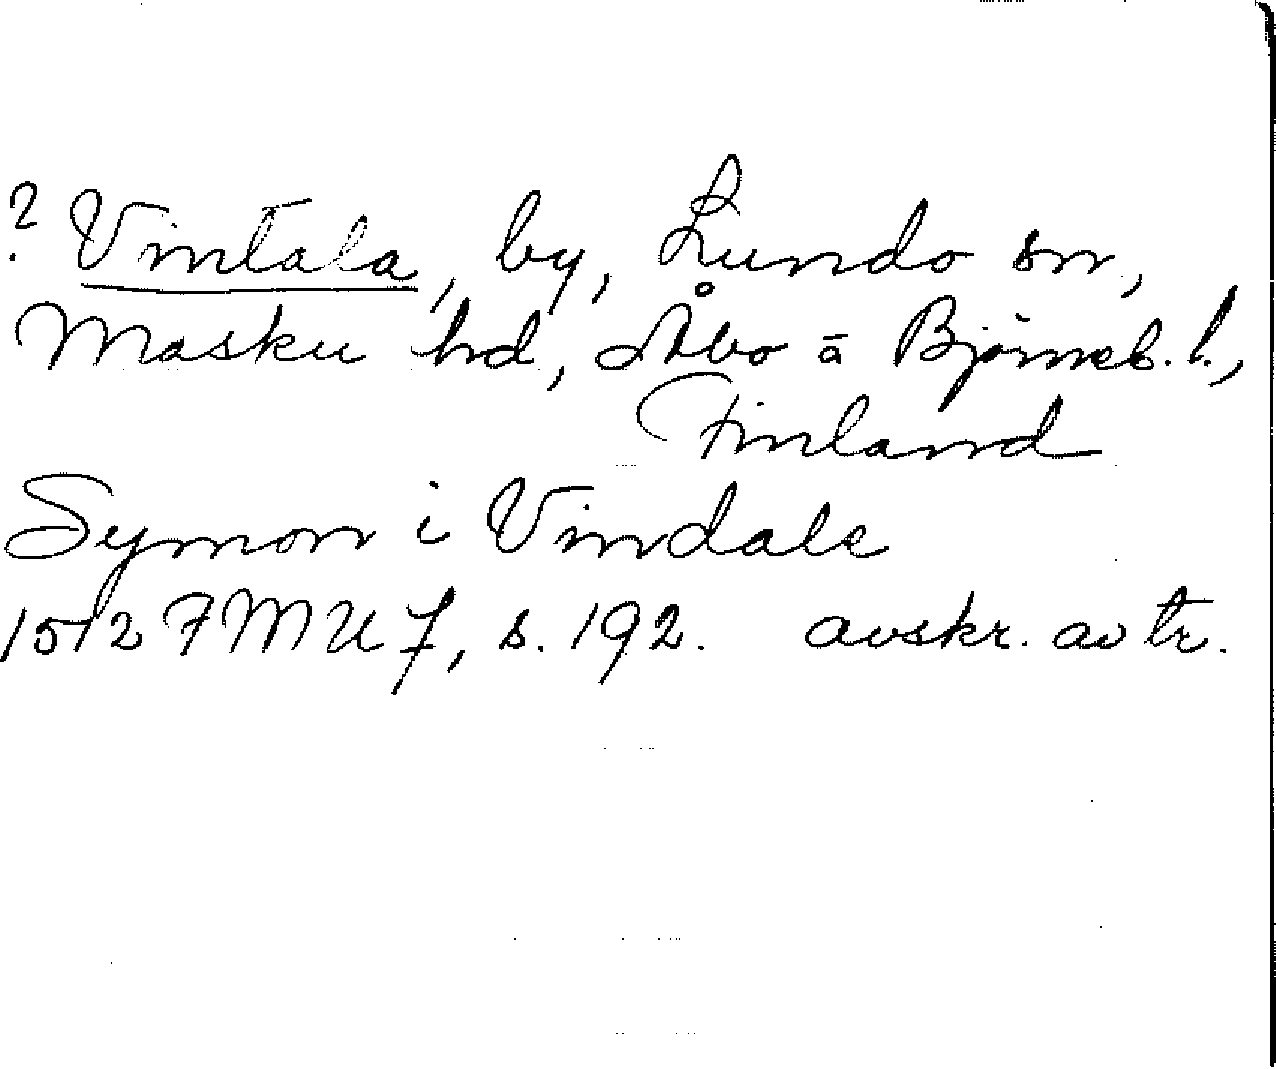 ? Vintala, by, Lundo sn,
Masku hd, Åbo ā Björneb. l.,
Finland
Symon i Vindale
1512 FMU 7, s. 192. avskr. av tr.